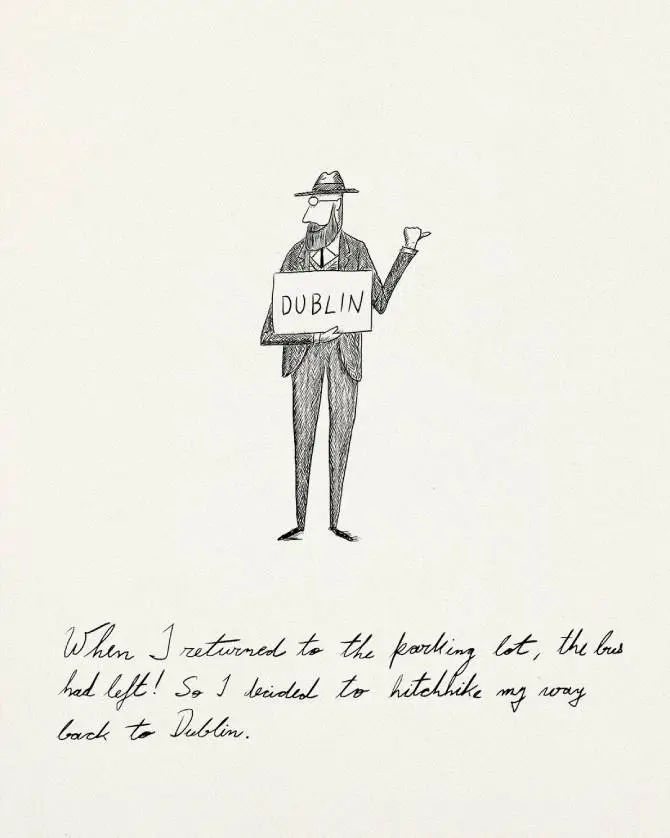 DUBLIN
When I returned to the parking lot, the bus
had left! So I decided to hitchhike my way
back to Dublin.